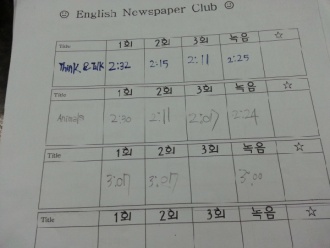 ☺ English Newspaper Club ☺
Title 1회 2회 3회 녹음 ☆
Think & Talk 2:32 2:15 2:11 2:25
Title 1회 2회 3회 녹음 ☆
Animals 2:30 2:11 2:07 2:24
Title 1회 2회 3회 녹음 ☆
3:07 3:07 3:00
Title 1회 2회 3회 녹음 ☆